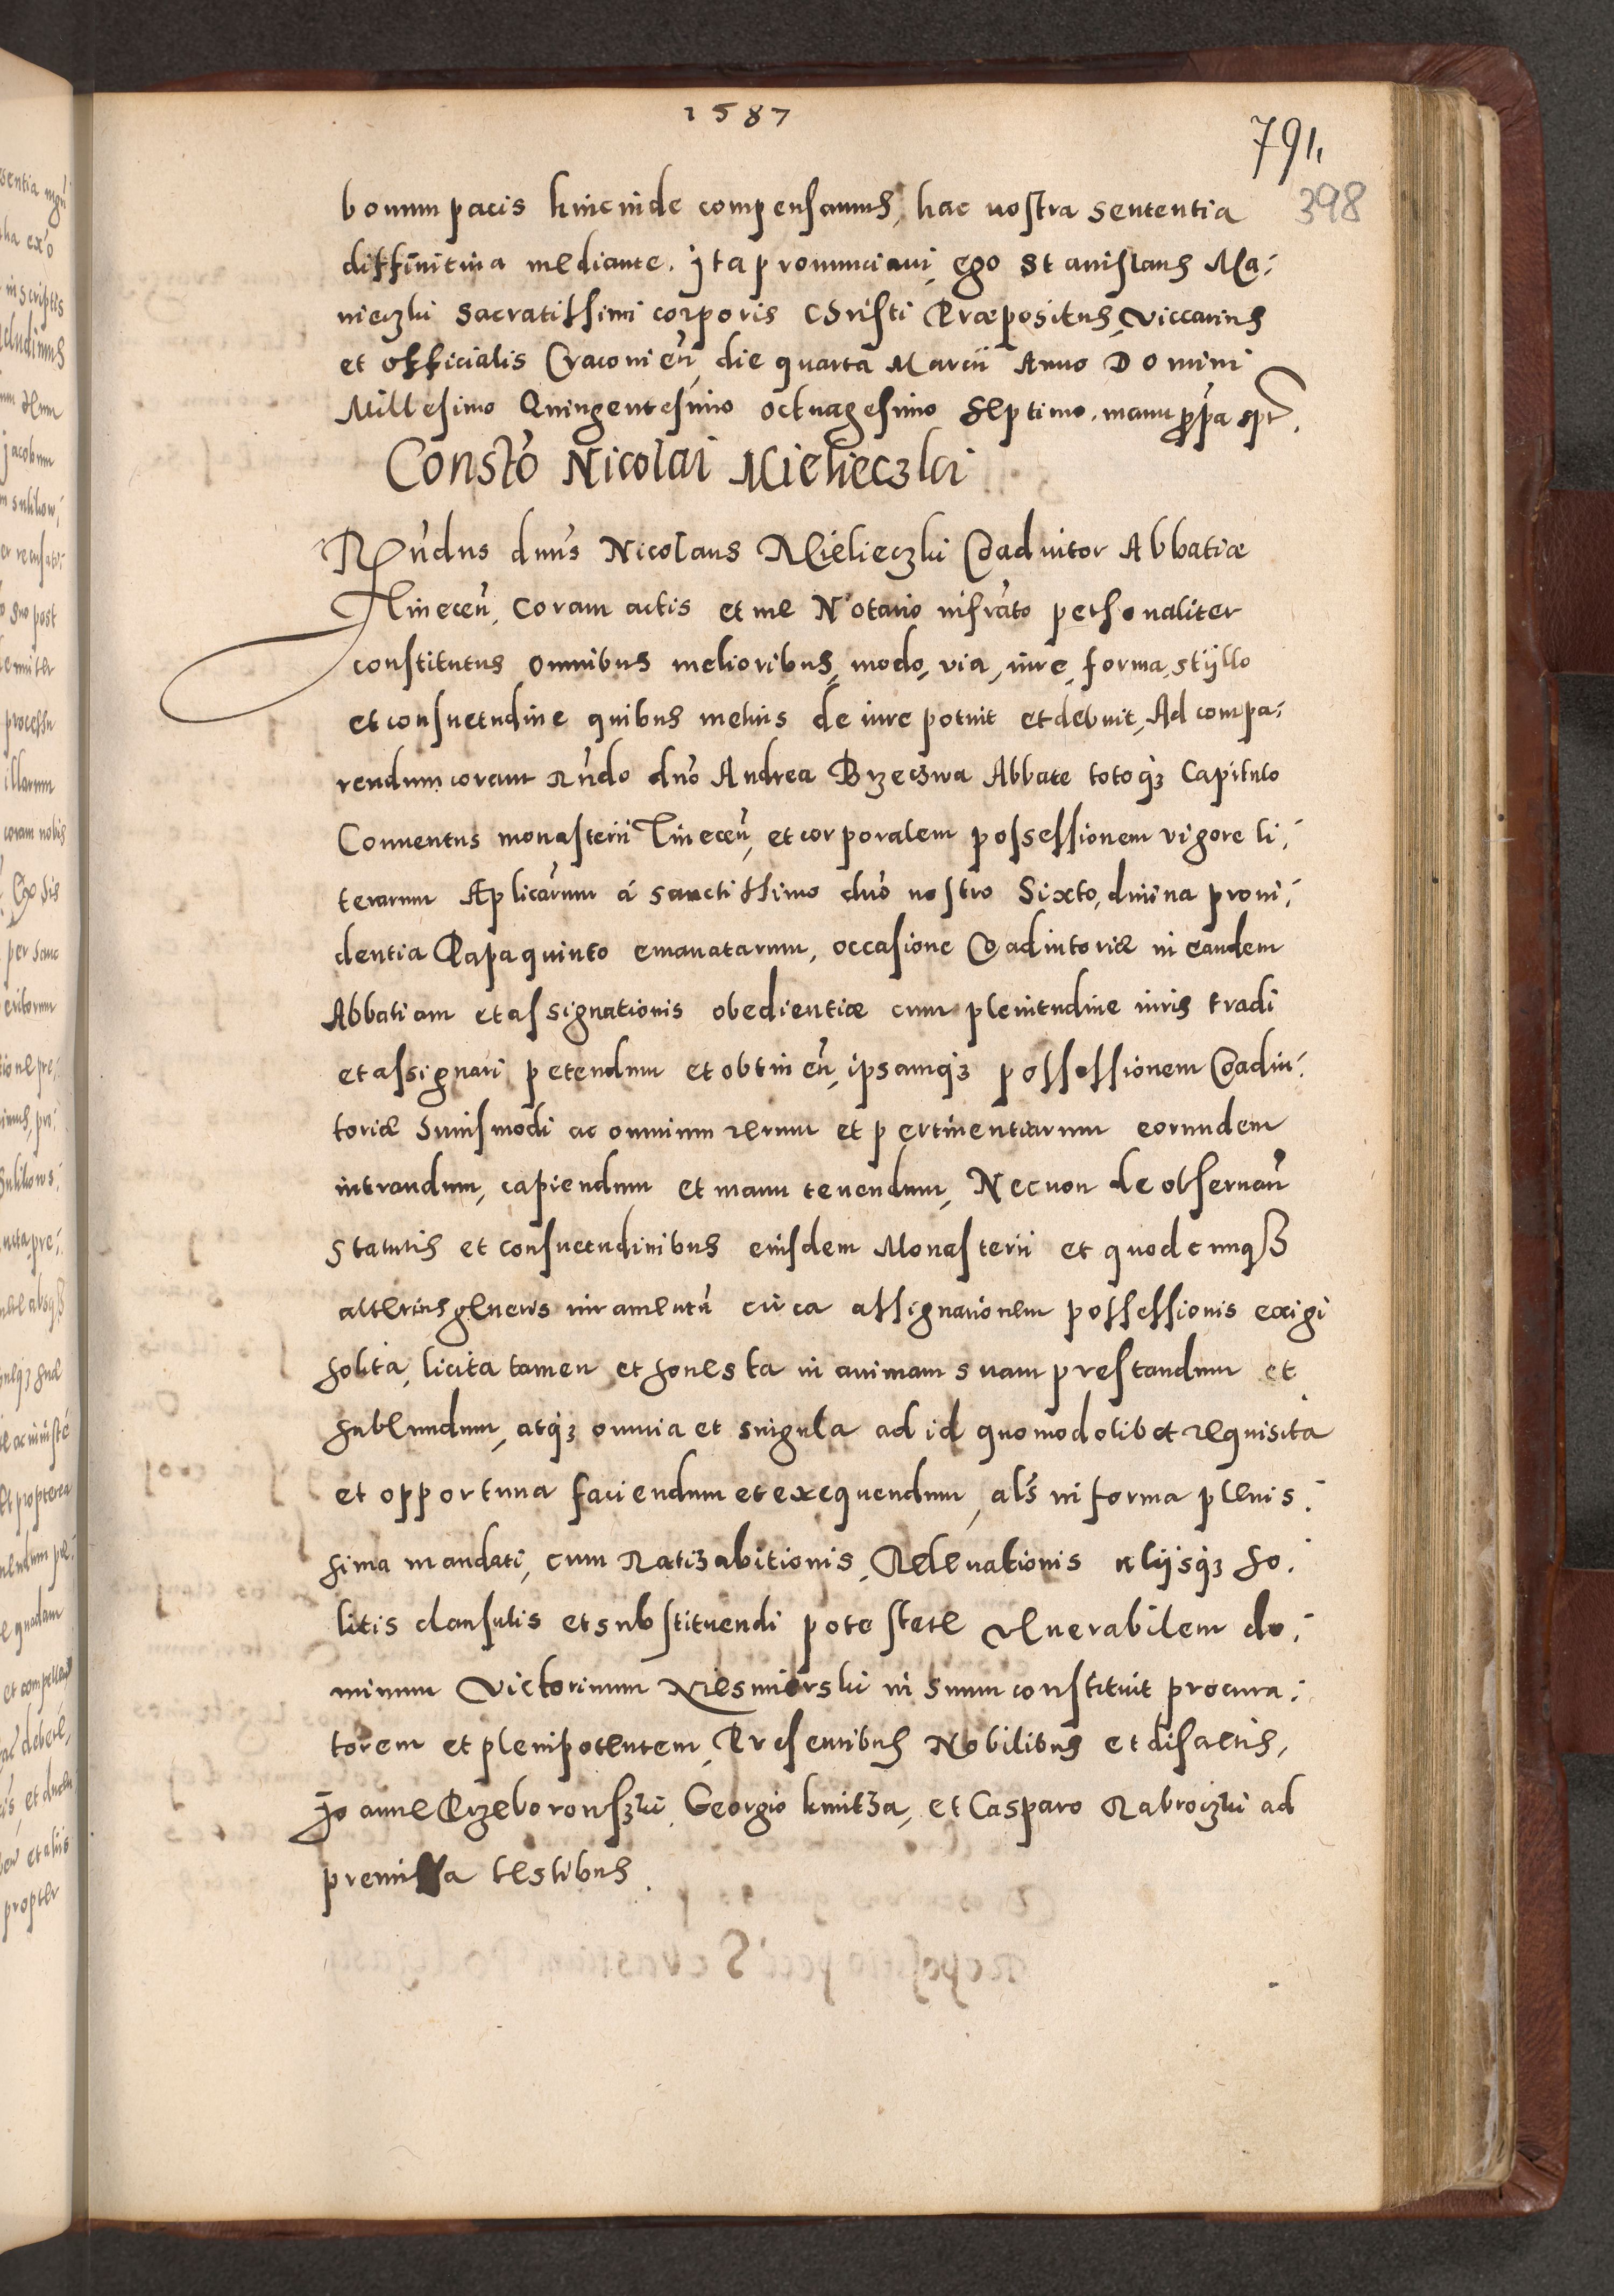 1587
791
398
bonum pacis hincinde compensamus, hac nostra sententia
diffinitiua mediante. Ita pronunciaui ego Stanislaus Ma-
nieczki Sacratissimi corporis Christi Præpositus, Viccarius
et officialis Cracouień die quarta Marcii Anno Domini
Millesimo Quingentesimo octuagesimo septimo. manu ppa spt.
Constō Nicolai Mielieczki
Rńdus dnūs Nicolaus Mielieczki Coadiutor Abbatiæ
Tinecen̄, coram actis et me Notario infrāto personaliter
constitutus omnibus melioribus, modo, via, iure, forma, stijllo
et consuetudine quibus melius de iure potuit et debuit, Ad compa-
rendum coram Rńdo dnō Andrea Brzechwa Abbate totoq3 Capitulo
Conuentus monasterii Tinecen̄, et corporalem possessionem vigore li-
terarum Aplicārum á sanctissimo dnō nostro Sixto, diuina proui-
dentia Papa quinto emanatarum, occasione Coadiutoriæ in eandem
Abbatiam et assignationis obedientiæ cum plenitudine iuris tradi
et assignari petendum et obtinen̄, ipsamq3 possessionem Coadiu-
toriæ huiusmodi ac omnium rerum et pertinentiarum eorundem
intrandum, capiendum et manu tenendum, Necnon de obseruan̄
Statutis et consuetudinibus eiusdem Monasterii et quodcunqß
alterius generis iuramentū circa assignationem possessionis exigi
solita, licita tamen et honesta in animam suam prestandum et
subeundum, atq3 omnia et singula ad id quomodolibet requisita
et opportuna faciendum et exequendum, als̄ in forma plenis-
sima mandati, cum Ratihabitionis, Releuationis aliisq3 so-
litis clausulis et substituendi potestate venerabilem do-
minum Victorinum Niesmierski in suum constituit procura-
torem et plenipotentem, Presentibus Nobilibus et discretis,
Joanne Przeborowszki, Georgio kmitha, et Casparo Rabroczki ad
premissa testibus.